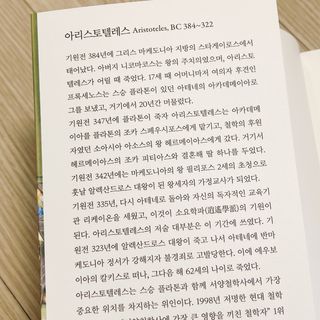 아리스토텔레스 Aristoteles, BC 384~322
기원전 384년에 그리스 마케도니아 지방의 스타게이로스에서
태어났다. 아버지 니코마코스는 왕의 주치의였으며, 아리스토
텔레스가 어릴 때 죽었다. 17세 때 어머니마저 여의자 후견인
프록세노스는 스승 플라톤이 있던 아테네의 아카데메이아로
그를 보냈고, 거기에서 20년간 머물렀다.
기원전 347년에 플라톤이 죽자 아리스토텔레스는 아카데메
이아를 플라톤의 조카 스페우시포스에게 맡기고, 철학의 후원
자였던 소아시아 아소스의 왕 헤르메이아스에게 갔다. 거기서
헤르메이아스의 조카 피티아스와 결혼해 딸 하나를 두었다.
기원전 342년에는 마케도니아의 왕 필리포스 2세의 초청으로
훗날 알렉산드로스 대왕이 된 왕세자의 가정교사가 되었다.
기원전 335년, 다시 아테네로 돌아와 자신의 독자적인 교육기
관 리케이온을 세웠고, 이것이 소요학파(逍遙學派)의 기원이
된다. 아리스토텔레스의 저술 대부분은 이 기간에 쓰였다. 기
원전 323년에 알렉산드로스 대왕이 죽고 나서 아테네에 반마
케도니아 정서가 강해지자 불경죄로 고발당한다. 이에 에우보
이아의 칼키스로 떠나, 그다음 해 62세의 나이로 죽었다.
아리스토텔레스는 스승 플라톤과 함께 서양철학사에서 가장
중요한 위치를 차지하는 위인이다. 1998년 저명한 현대 철학
가장 큰 영향을 끼친 철학자” 1위